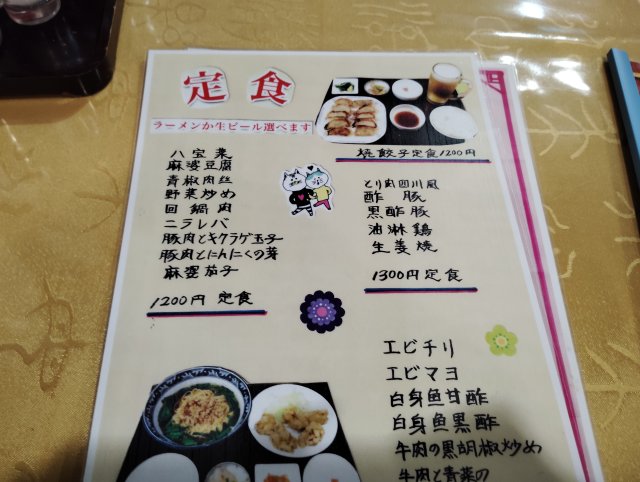 定食
ラーメンか生ビール選べます
焼餃子定食1200円
八宝菜
麻婆豆腐
青椒肉丝
野菜炒め
回鍋肉
ニラレバ
豚肉とキクラゲ玉子
豚肉とにんにくの芽
麻婆茄子
1200円 定食
とり肉四川風
酢豚
黒酢豚
油淋鶏
生姜焼
1300円定食
エビチリ
エビマヨ
白身魚甘酢
白身魚黒酢
牛肉の黒胡椒炒め
牛肉と青菜の